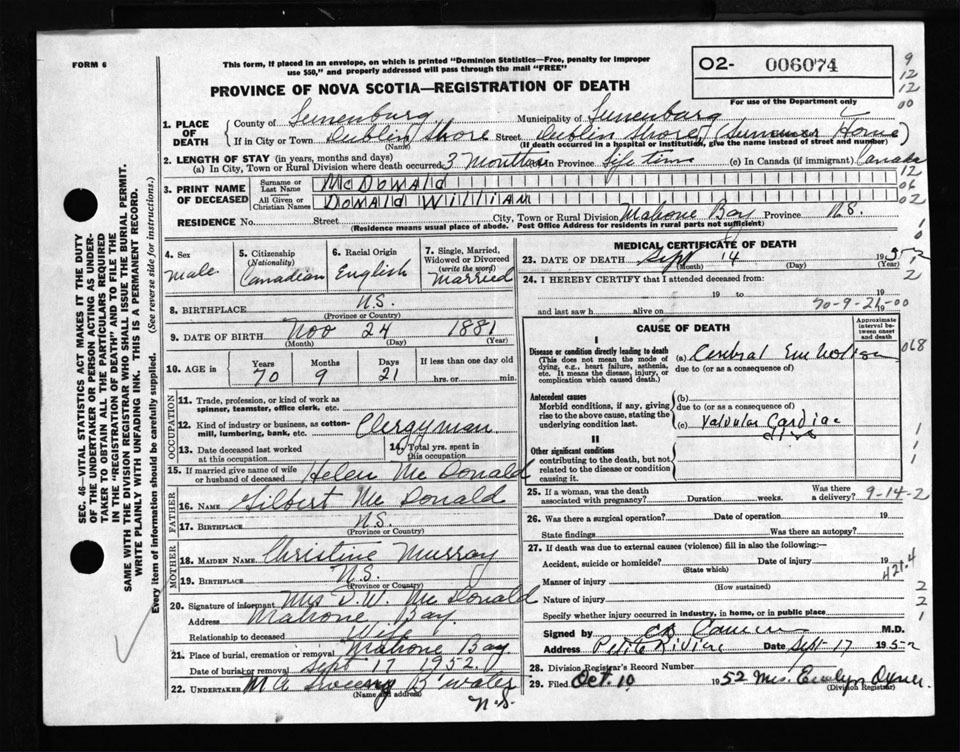 FORM 6
This form, if placed in an envelope, on which is printed "Dominion Statistics—Free, penalty for improper
use $50," and properly addressed will pass through the mail "FREE"
O2- 006074
For use of the Department only
PROVINCE OF NOVA SCOTIA—REGISTRATION OF DEATH
9
12
12
00
1. PLACE OF DEATH
County of Lunenburg Municipality of Lunenburg
If in City or Town Dublin Shore Street Dublin Shore (Summer Home)
(Name) (If death occurred in a hospital or institution, give the name instead of street and number)
2. LENGTH OF STAY (in years, months and days)
(a) In City, Town or Rural Division where death occurred 3 Months In Province Life time (c) In Canada (if immigrant) Canada
12
06
02
3. PRINT NAME OF DECEASED
Surname or Last Name McDonald
All Given or Christian Names Donald William
RESIDENCE No. Street City, Town or Rural Division Mahone Bay Province N.S.
(Residence means usual place of abode. Post Office Address for residents in rural parts not sufficient)
4. Sex Male
5. Citizenship (Nationality) Canadian
6. Racial Origin English
7. Single, Married, Widowed or Divorced (write the word) Married
8. BIRTHPLACE N.S.
(Province or Country)
9. DATE OF BIRTH Nov 24 1881
(Month) (Day) (Year)
10. AGE in Years 70 Months 9 Days 21 If less than one day old hrs. or min.
OCCUPATION
11. Trade, profession, or kind of work as spinner, teamster, office clerk, etc.
12. Kind of industry or business, as cotton-mill, lumbering, bank, etc. Clergyman
13. Date deceased last worked at this occupation
14. Total yrs. spent in this occupation
15. If married give name of wife or husband of deceased Helen McDonald
FATHER
16. NAME Gilbert McDonald
17. BIRTHPLACE N.S.
(Province or Country)
MOTHER
18. MAIDEN NAME Christine Murray
19. BIRTHPLACE N.S.
(Province or Country)
20. Signature of informant Mrs D.W. McDonald
Address Mahone Bay.
Relationship to deceased Wife
21. Place of burial, cremation or removal Mahone Bay
Date of burial or removal Sept 17 1952.
22. UNDERTAKER M A Sweeny B'water
(Name and address) N.S.
MEDICAL CERTIFICATE OF DEATH
23. DATE OF DEATH Sept 14 1952
(Month) (Day) (Year)
24. I HEREBY CERTIFY that I attended deceased from:
19 to 19
70-9-21-00
and last saw h alive on 19
CAUSE OF DEATH
Approximate interval between onset and death
I
Disease or condition directly leading to death
(This does not mean the mode of dying, e.g., heart failure, asthenia, etc. It means the disease, injury, or complication which caused death.)
(a) Cerebral Embolism
due to (or as a consequence of)
068
Antecedent causes
Morbid conditions, if any, giving rise to the above cause, stating the underlying condition last.
(b)
due to (or as a consequence of)
(c) Valvular Cardiac
II
Other significant conditions
contributing to the death, but not related to the disease or condition causing it.
1
1
1
25. If a woman, was the death associated with pregnancy? Duration weeks. Was there a delivery? 9-14-2
26. Was there a surgical operation? Date of operation 19
State findings Was there an autopsy?
27. If death was due to external causes (violence) fill in also the following:—
Accident, suicide or homicide? Date of injury 19
(State which)
421.4
Manner of injury
(How sustained)
Nature of injury
Specify whether injury occurred in industry, in home, or in public place
2
2
1
Signed by M.D.
Address Petite Riviere Date Sept 17 1952
28. Division Registrar's Record Number
29. Filed Oct. 10 1952 Mrs. Evelyn
(Division Registrar)
SEC. 46—VITAL STATISTICS ACT MAKES IT THE DUTY
OF THE UNDERTAKER OR PERSON ACTING AS UNDER-
TAKER TO OBTAIN ALL THE PARTICULARS REQUIRED
IN THE "REGISTRATION OF DEATH" AND TO FILE THE
SAME WITH THE DIVISION REGISTRAR WHO SHALL ISSUE THE BURIAL PERMIT.
WRITE PLAINLY WITH UNFADING INK. THIS IS A PERMANENT RECORD.
Every item of information should be carefully supplied. (See reverse side for instructions.)